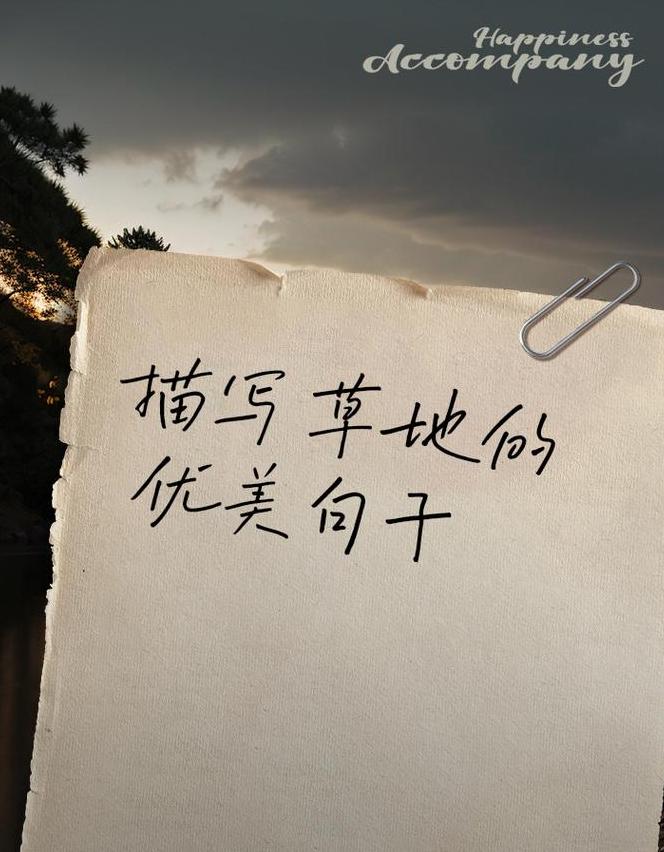 Happiness
Accompany
描写草地的
优美句子